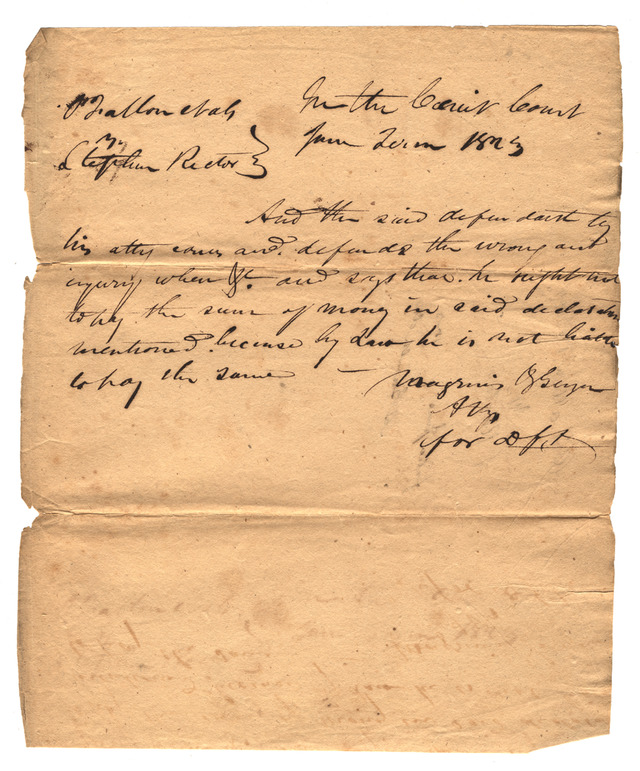 O'Fallon et als
vs
Stephen Rector
In the Circuit Court
June Term 1823
And the said defendant by
his atty comes and defends the wrong and
injury when &c. and says that he ought not
to pay the sum of money in said declaration
mentioned because by Law he is not liable
to pay the same — Magenis & Geyer
Attys
for Dft